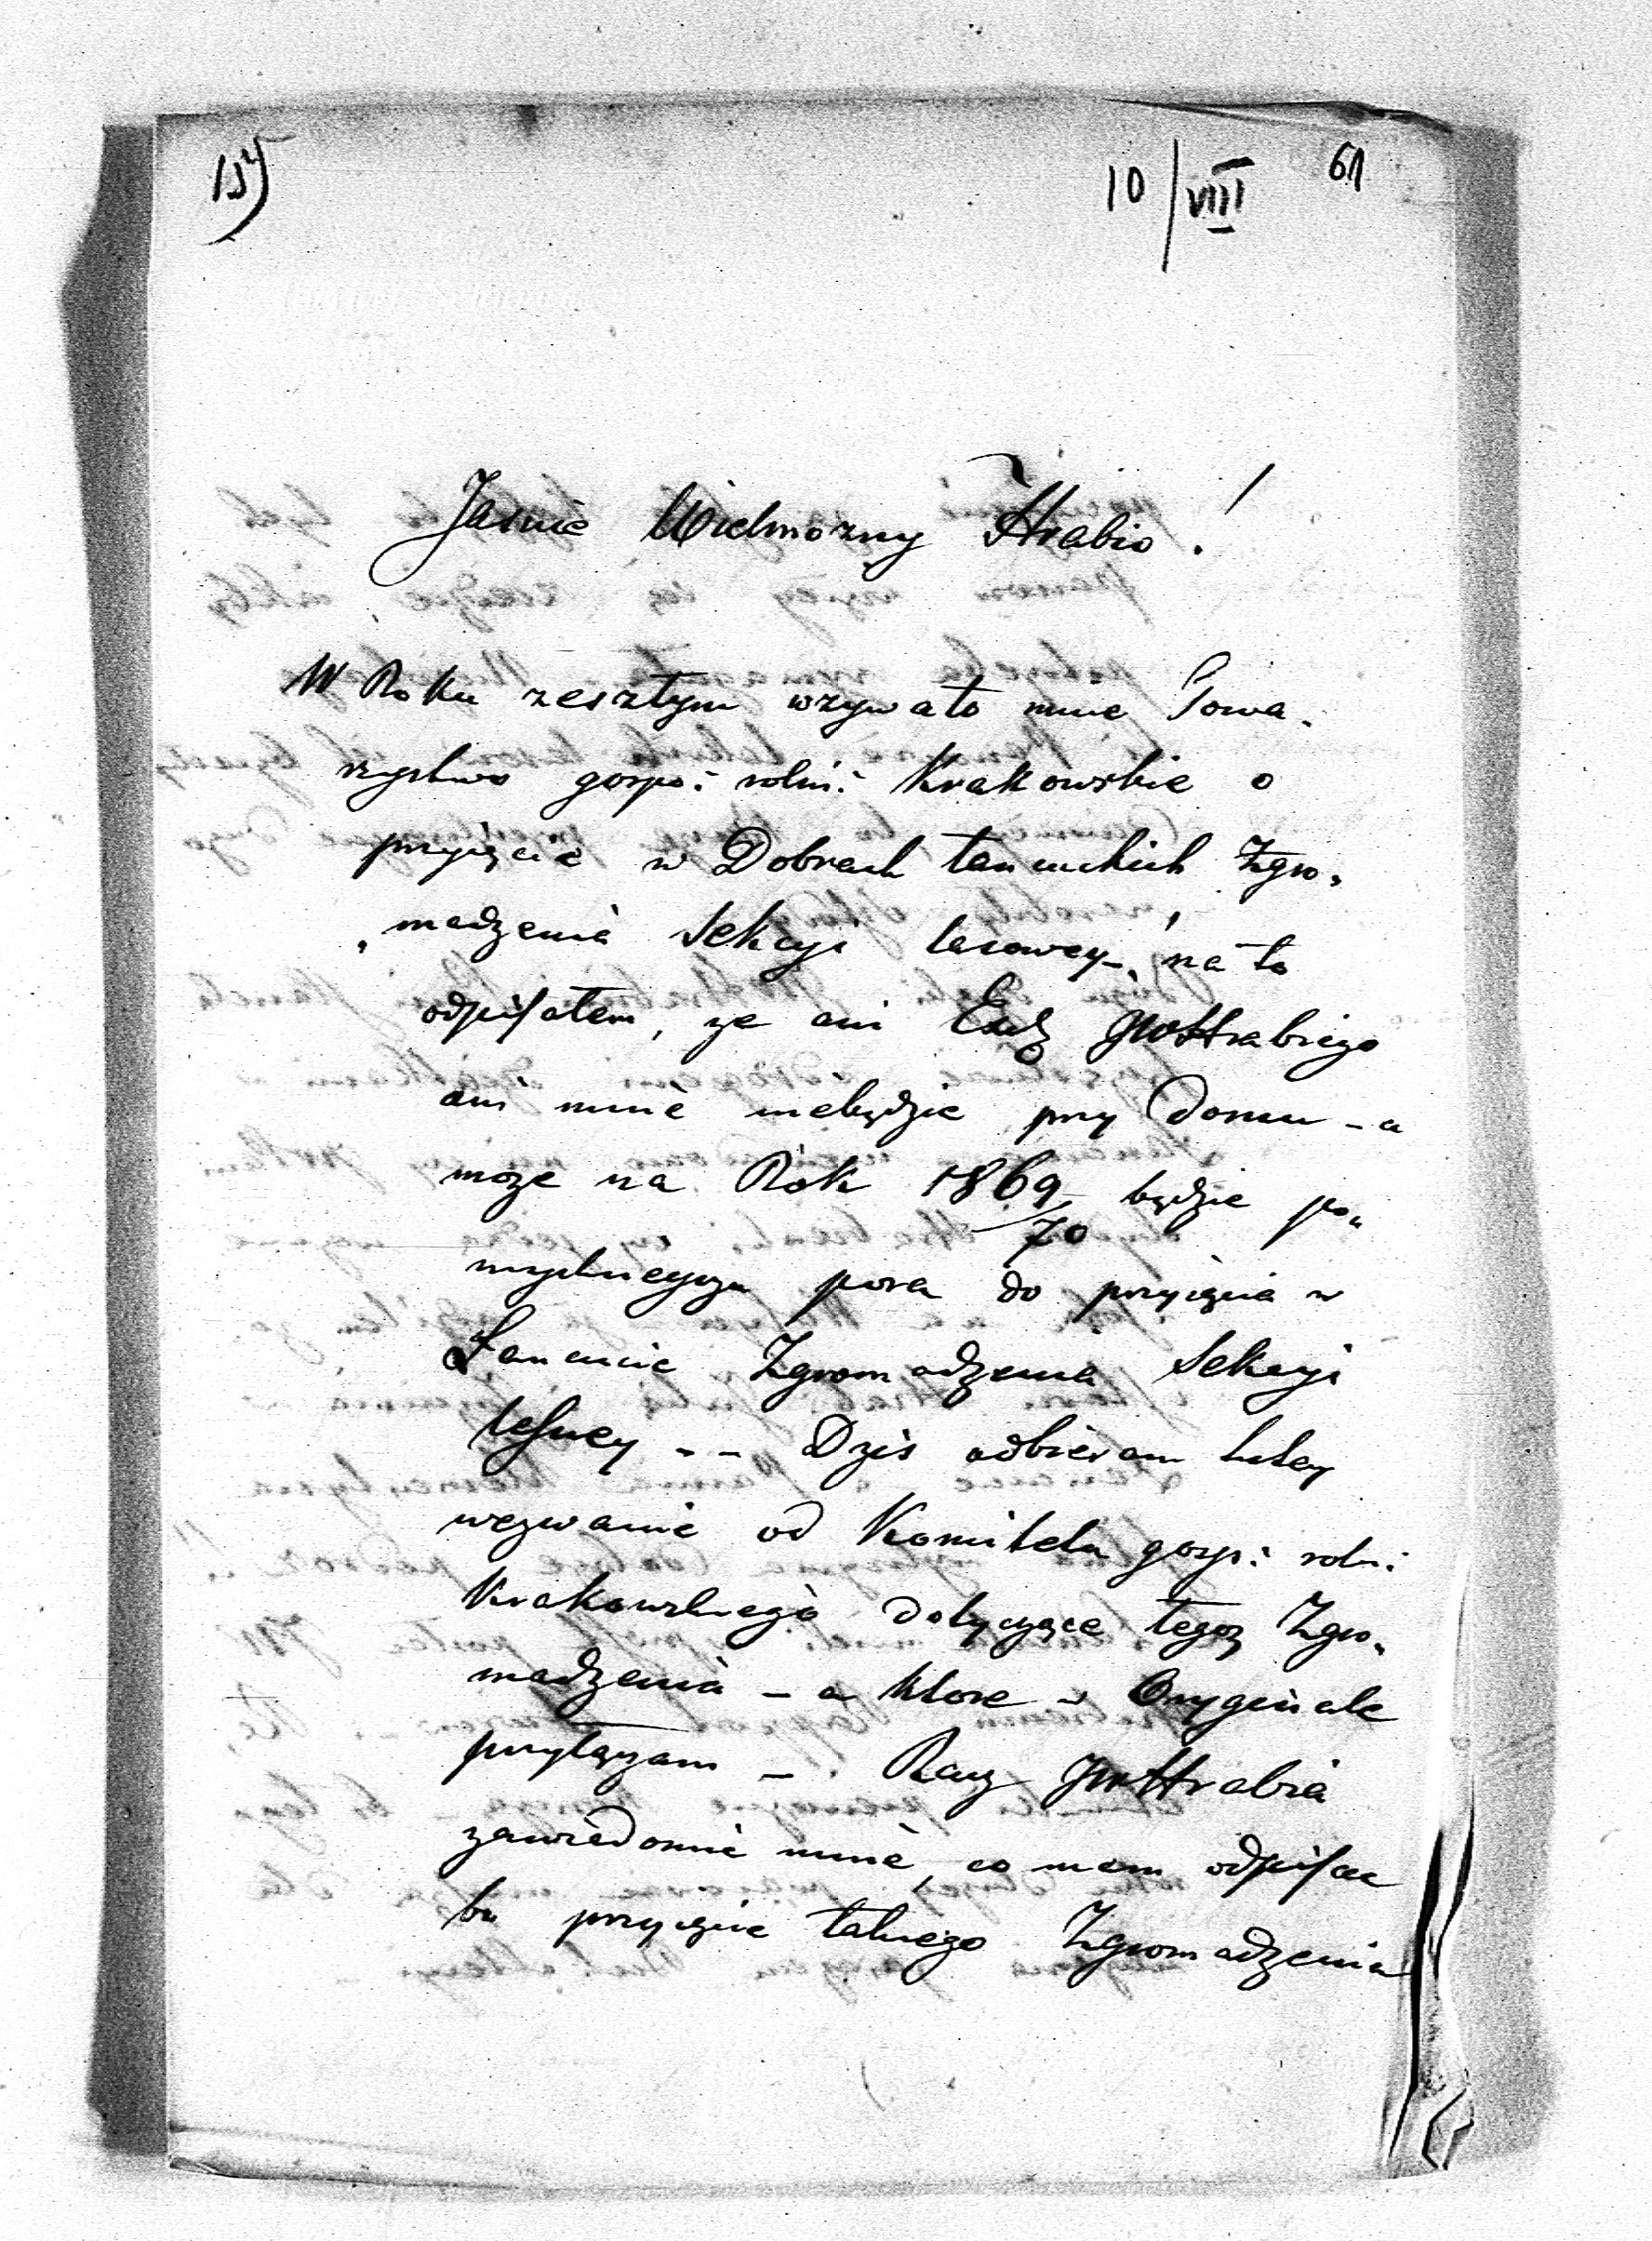 10/VIII 61
Jaśnie Wielmożny Hrabio!
W Roku zesztym wzywało mnie Towa-
rzystwo gospo: rolni: Krakowskie o
przyięcie w Dobrach łancuckich Zgro-
madzenia Sekcyi lasowey – na to
odpisałem, że ani Exclz JWHrabiego
ani mnie niebędzie przy Domu – a
może na Rok 1869/70 będzie po-
myslnieysza pora do przyięcia w
Łancucie Zgromadzenia Sekcyi
lesney – – Dziś odbieram tutey
wezwanie od Komitetu gosp: roln:
Krakowskiego dotyczące tegoż Zgro-
madzenia – a ktore w Oryginale
przyłączam – . Racz JWHrabia
zawiedomić mnie, co mam odpisac
bo przyięcie takiego Zgromadzenia